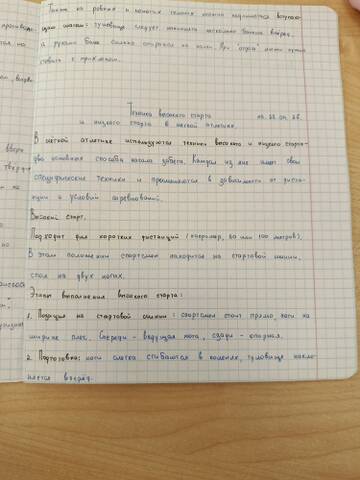 Также на ровных и пологих склонах можно подниматься ступаю-
щим шагом: туловище следует наклонить несколько больше вперед,
а руками более сильно опираться на палки. При
ставить к
Техника высокого старта
и низкого старта в легкой атлетике.
В легкой атлетике используются техники высокого и низкого старта-
два основных способа начала забега. Каждая из них имеет свои
специфические техники и применяется в зависимости от дистан-
ции и условий соревнований.
Высокий старт.
Подходит для коротких дистанций (например, 60 или 100 метров).
В этом положении спортсмен находится на стартовой линии,
стоя на двух ногах.
Этапы выполнения высокого старта:
1. Позиция на стартовой линии: спортсмен стоит прямо, ноги на
ширине плеч. Спереди - ведущая нога, сзади - опорная.
2. Подготовка: ноги слегка сгибаются в коленях, туловище накло-
няется вперёд.